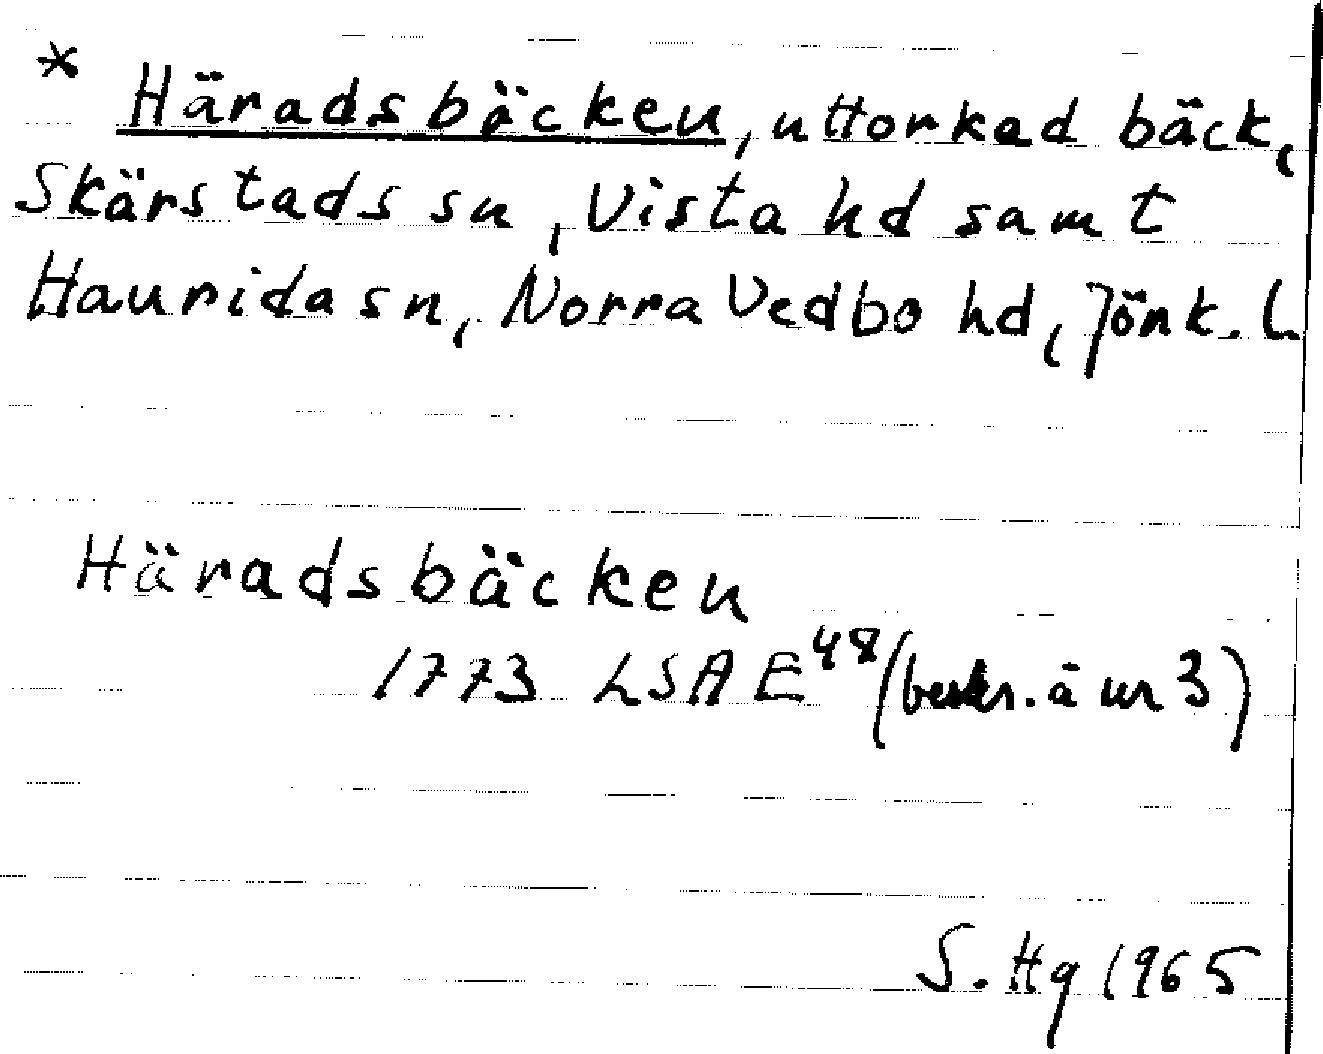 * Häradsbäcken, uttorkad bäck,
Skärstads sn, Vista hd samt
Haurida sn, Norra Vedbo hd, Jönk. l.
Häradsbäcken
1773 LSA E48 (beskr. å nr 3)
S. Hg 1965